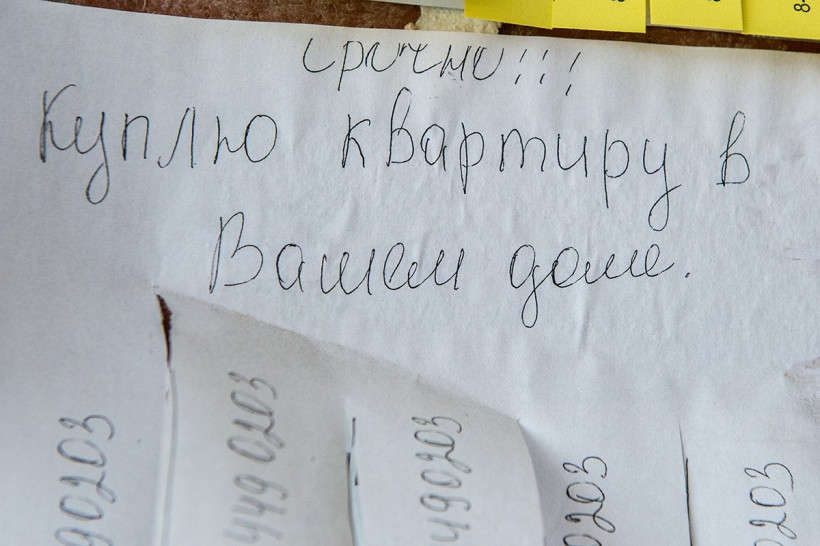 Срочно!!!
Куплю квартиру в
Вашем доме.
90203
449 0203
490203
0203
0203
8-